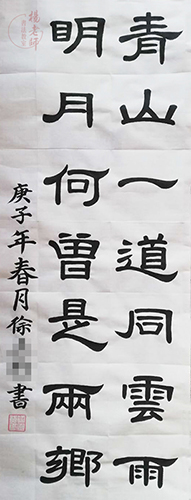 青山一道同雲雨
明月何曾是兩鄉
庚子年春月徐
書
楊老師